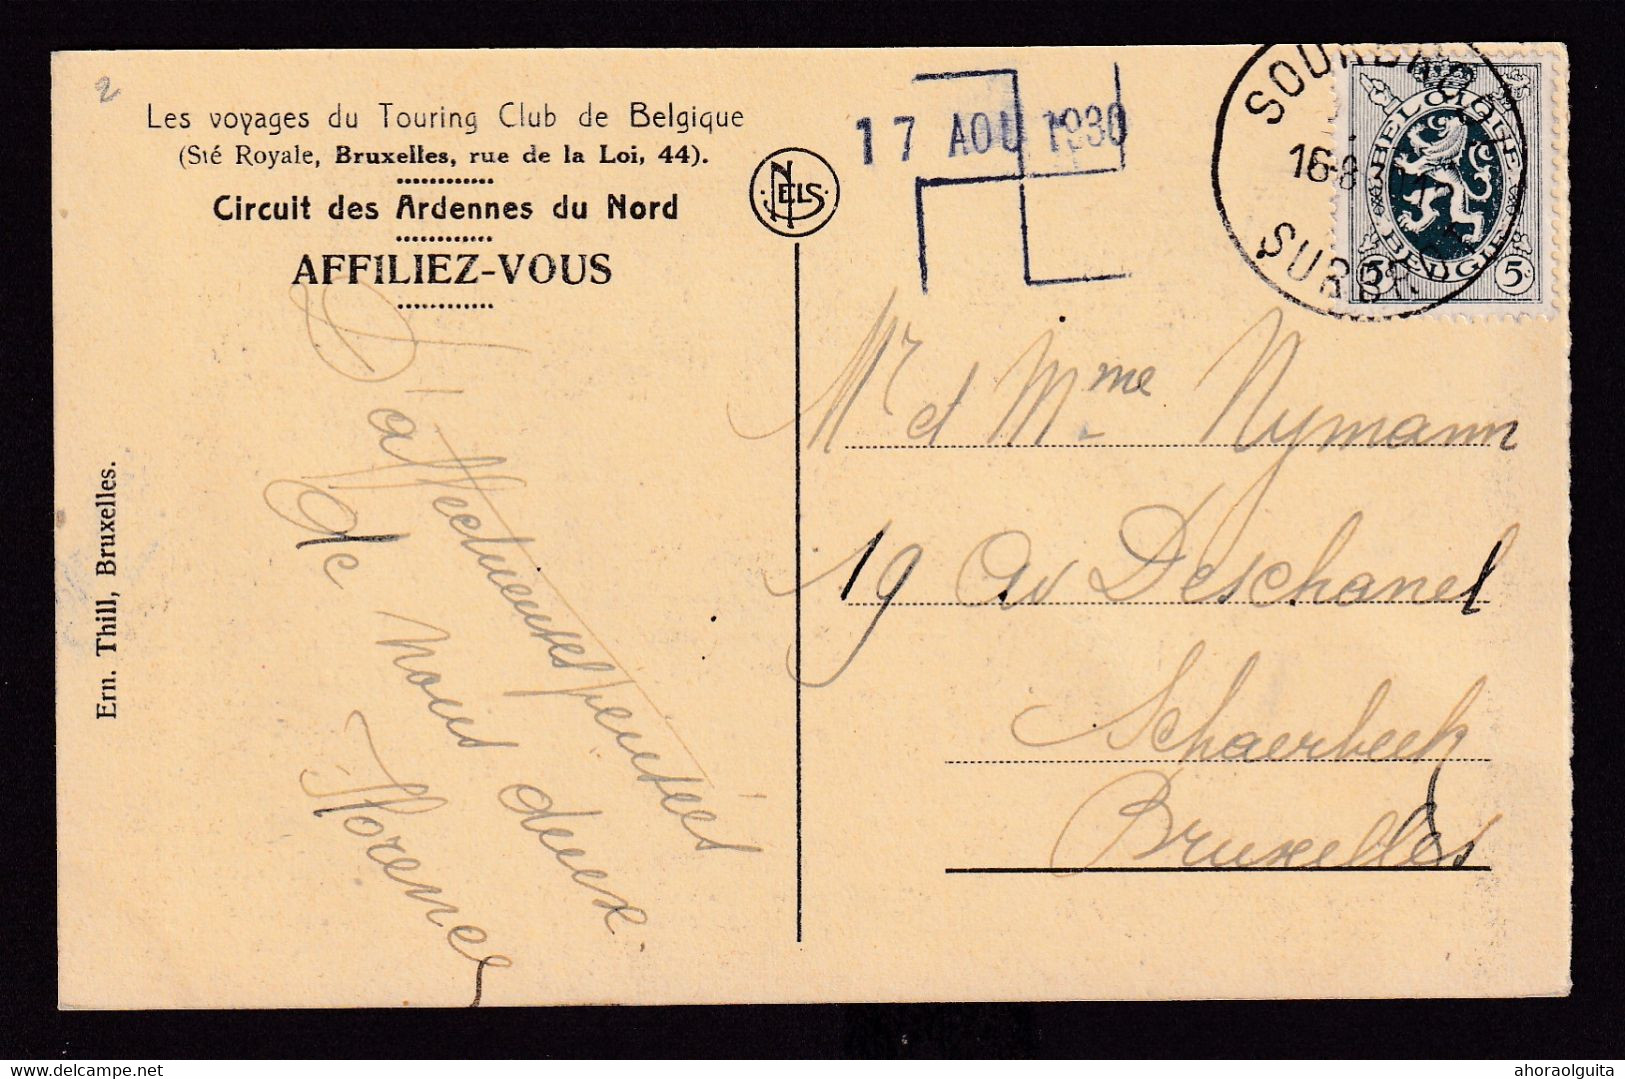 2
Les voyages du Touring Club de Belgique
(Sté Royale, Bruxelles, rue de la Loi, 44).
Circuit des Ardennes du Nord
AFFILIEZ-VOUS
NELS
17 AOU 1930
16-8
BELGIQUE
BELGIE
5c 5c
Ern. Thill, Bruxelles.
D'affectueuses pensées
de nous deux.
Florence
Mr et Mme Nymann
19 av Deschanel
Schaerbeek
Bruxelles
delcampe.net
ahoraolguita